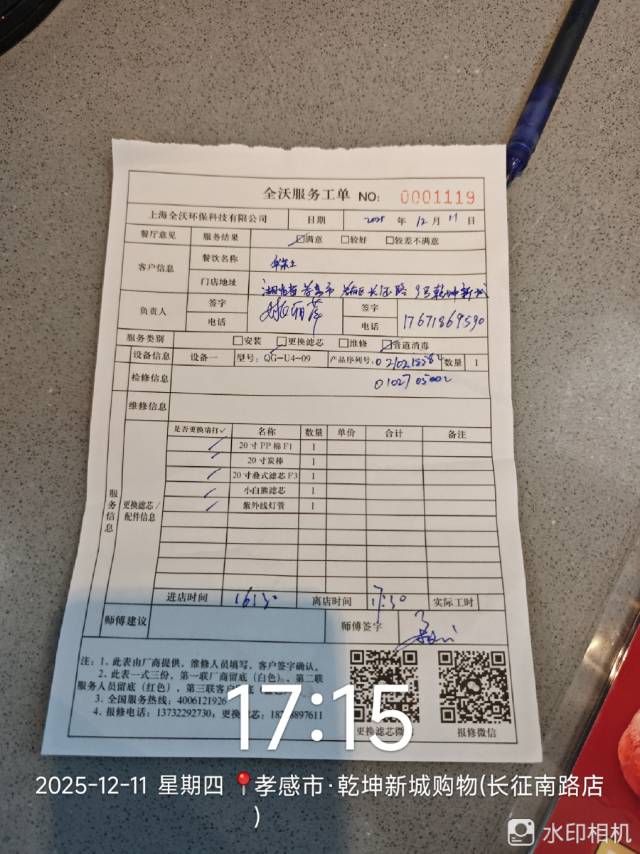 全沃服务工单 NO: 0001119
上海全沃环保科技有限公司 日期 2025 年 12 月 11 日
餐厅意见 服务结果 ☑满意 □较好 □较差不满意
客户信息 餐饮名称
门店地址 湖北省孝感市 长征路 9号乾坤新城
负责人 签字 签字
电话 电话 17671869590
服务类别 □安装 ☑更换滤芯 □维修 ☑管道消毒
设备信息 设备一 型号: QG-U4-09 产品序列号: 数量 1
检修信息
维修信息
服务信息 更换滤芯/配件信息
是否更换请打✓ 名称 数量 单价 合计 备注
✓ 20寸PP棉F1 1
✓ 20寸炭棒 1
✓ 20寸叠式滤芯F3 1
✓ 小白熊滤芯 1
✓ 紫外线灯管 1
进店时间 16:30 离店时间 17:30 实际工时
师傅建议 师傅签字
注: 1、此表由厂商提供, 维修人员填写, 客户签字确认。
2、此表一式三份, 第一联厂商留底(白色)、第二联
服务人员留底(红色)、第三联客户
3、全国服务热线: 4006121926
4、报修电话: 13732292730; 更换滤芯: 897611
更换滤芯微
报修微信
17:15
2025-12-11 星期四 孝感市·乾坤新城购物(长征南路店
)
水印相机